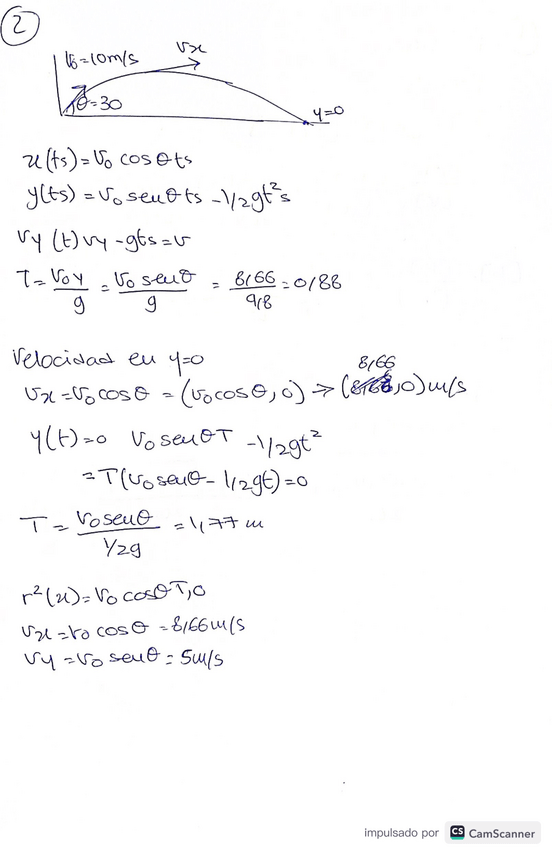 2
V₀=10m/s
Vx
θ=30
y=0
x(ts)=V₀ cosθts
y(ts)=V₀ senθts -1/2gt²s
Vy (t) Vy -gts=v
T= V₀y/g = V₀ senθ/g = 8,66/9,8 = 0,88
Velocidad en y=0
8,66
Vx=V₀cosθ = (V₀cosθ, 0) → ( ,0) m/s
y(t)=0 V₀ senθT -1/2gt²
=T(V₀senθ- 1/2gt)=0
T= V₀senθ / 1/2g = 1,77 m
r²(x)=V₀ cosθT,0
Vx=V₀ cosθ =8,66m/s
Vy =V₀ senθ= 5m/s
impulsado por CS CamScanner